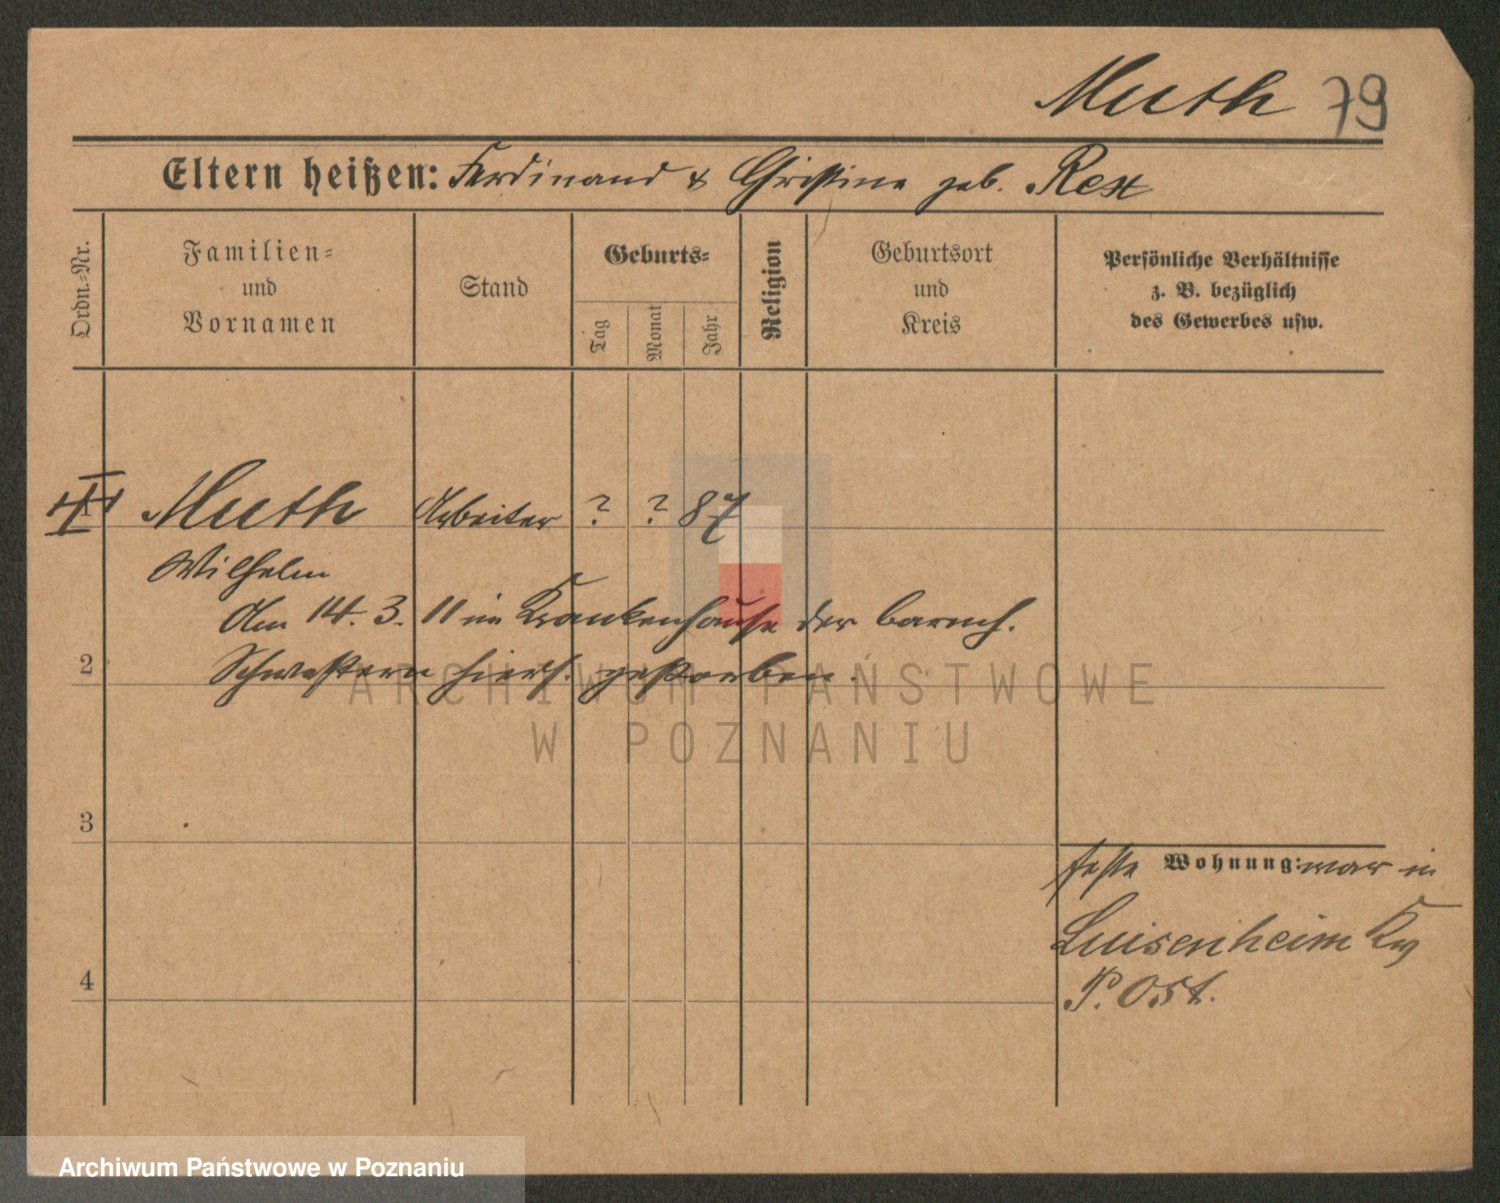 Muth 79
Eltern heißen: Ferdinand & Christine geb. Rex
Ordn.-Nr.
Familien-
und
Vornamen
Stand
Geburts-
Tag
Monat
Jahr
Religion
Geburtsort
und
Kreis
Persönliche Verhältnisse
z. B. bezüglich
des Gewerbes usw.
1 Muth Arbeiter ? ? 87
Wilhelm
Am 14. 3. 11 im Krankenhause der barmh.
2 Schwestern hiers. gestorben.
3
4
feste Wohnung: war in
Luisenheim Kr
P. Ost.
ARCHIWUM PAŃSTWOWE
W POZNANIU
Archiwum Państwowe w Poznaniu